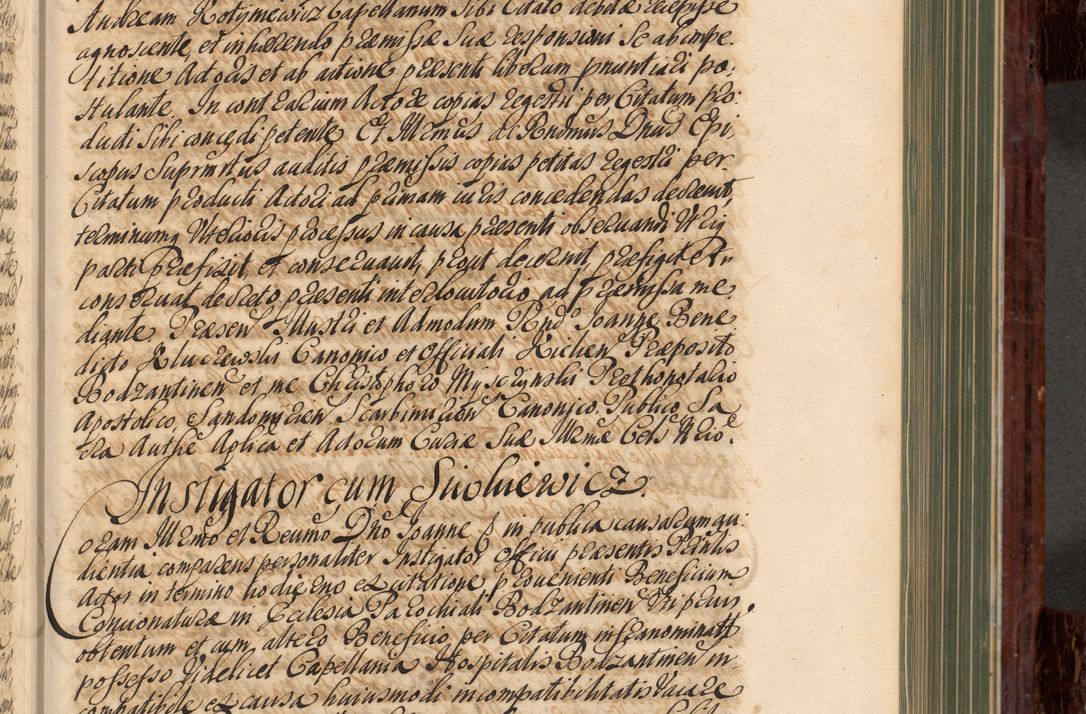 Andream Kotymiewicz Capellanum sibi Citato debitæ recepisse
agnoscente, et inhærendo præmissæ suæ responsioni se ab impe
titione Actoris et ab actione præsenti liberum pronuntiari po,
stulante. In contrarium Actore copias regestri per Citatum pro,
ducti sibi concedi petente. Et Illmus ac Rndmus Dnus Epi,
scopus Suprintus auditis præmissis copias petitas regestri per
Citatum producti Actori ad primam iuris concedendas decrevit,
terminumq ulterioris processus in causa præsenti observandi utriq
parti præfixit, et conservavit, prout decernit, præfigit et
conservat decreto præsenti interlocutorio ad præmissa me
diante. Præsen Illustri et Admodum Rndo Joanne Bene
dicto Kluczewski Canonico et Officiali Kielcen Præposito
Bodzantinen et me Christophoro Myszczynski Prothonotario
Apostolico, Sandomirien Scarbimirien Canonico, Publico, Sa
cra Authe Aplica et Actorum Curiæ suæ Illmæ Cels
Instigator cum Siukiewicz.
Coram Illmo et Reumo Dno Joanne in publica causarum au
dientia comparens personaliter Instigator Officii præsentis
Actor in termino hodierno ex citatione provenienti Beneficium
in Ecclesia Parochiali Bodzantinen
obtentum et cum altero Beneficio per Citatum infranominatt
possesso videlicet Capellania Hospitalis Bodzantinen in
compatibile ex causa huiusmodi incompatibilitatis vacare